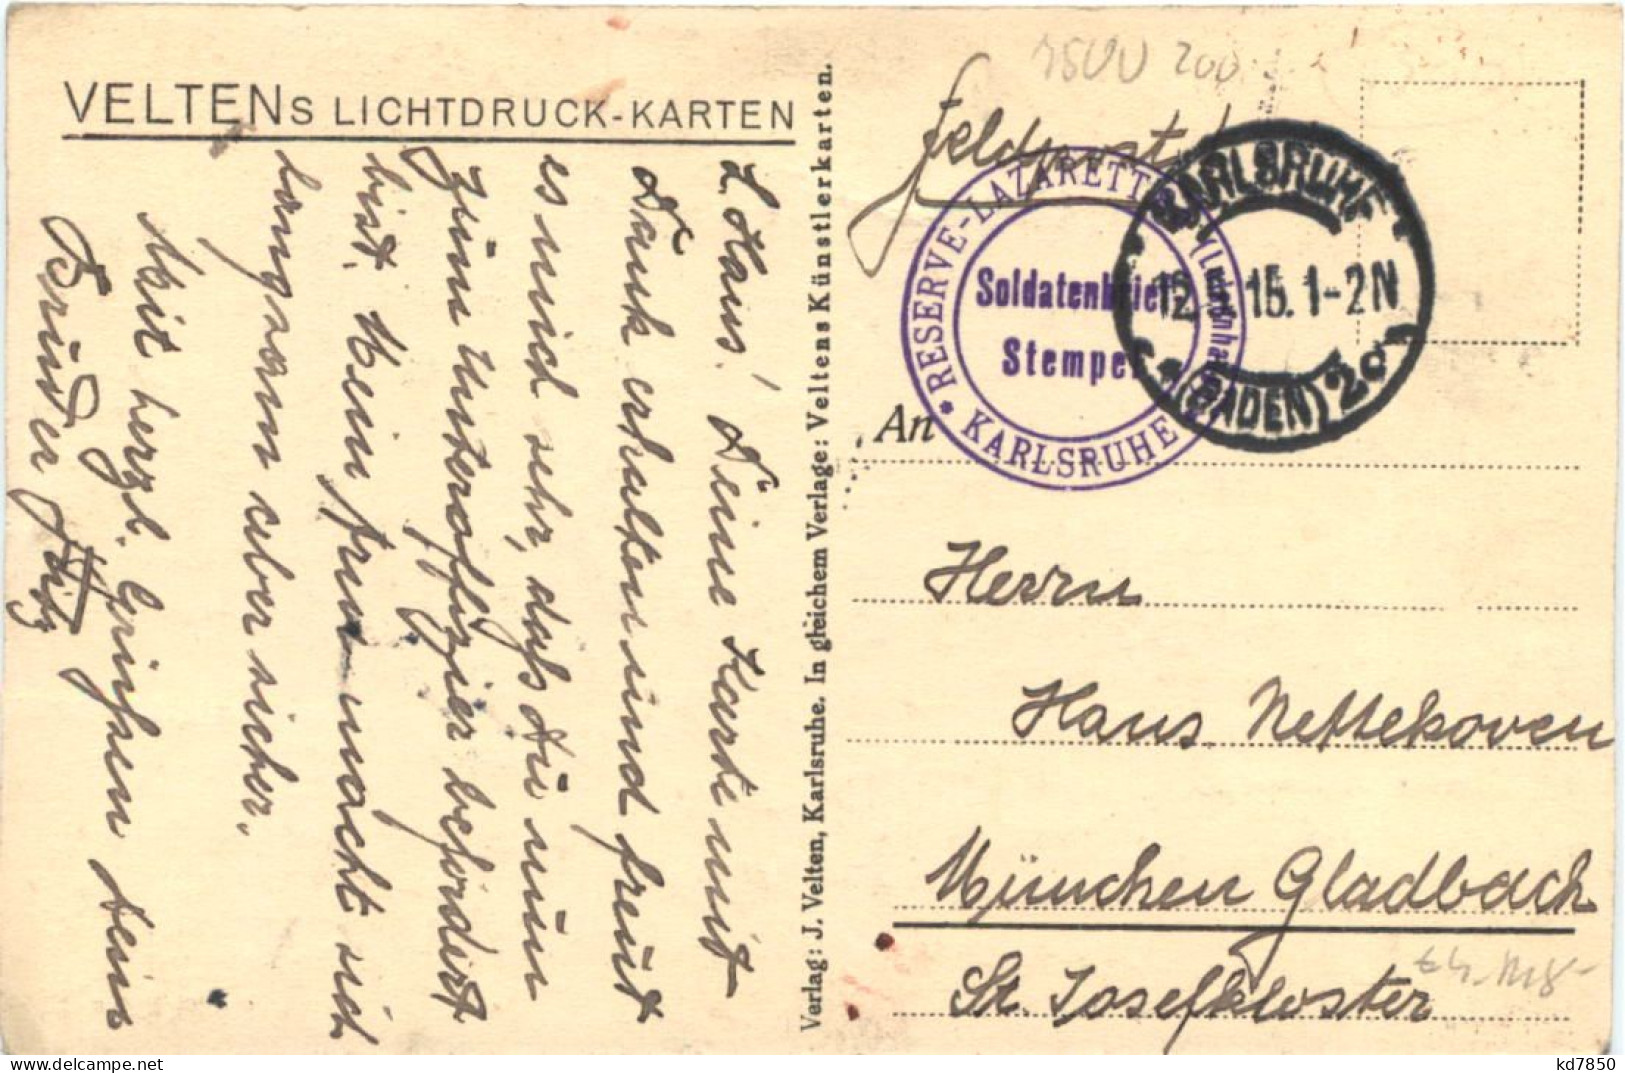 VELTENS LICHTDRUCK-KARTEN
L. Hans! Deine Karte mit
Dank erhalten und freut
es mich sehr, daß du nun
zum Unteroffizier befördert
bist. Mein macht sich
langsam aber sicher.
Mit herzl. Grüßen dein
Bruder
Verlag: J. Velten, Karlsruhe. In gleichem Verlage: Veltens Künstlerkarten.
1500 200
Feldpost
RESERVE-LAZARETT
Soldatenbrief
Stempel
* KARLSRUHE
KARLSRUHE
12. 15. 1-2N
(BADEN) 2
An
Herrn
Hans Nettekoven
München Gladbach
St. Josefkloster
kd7850